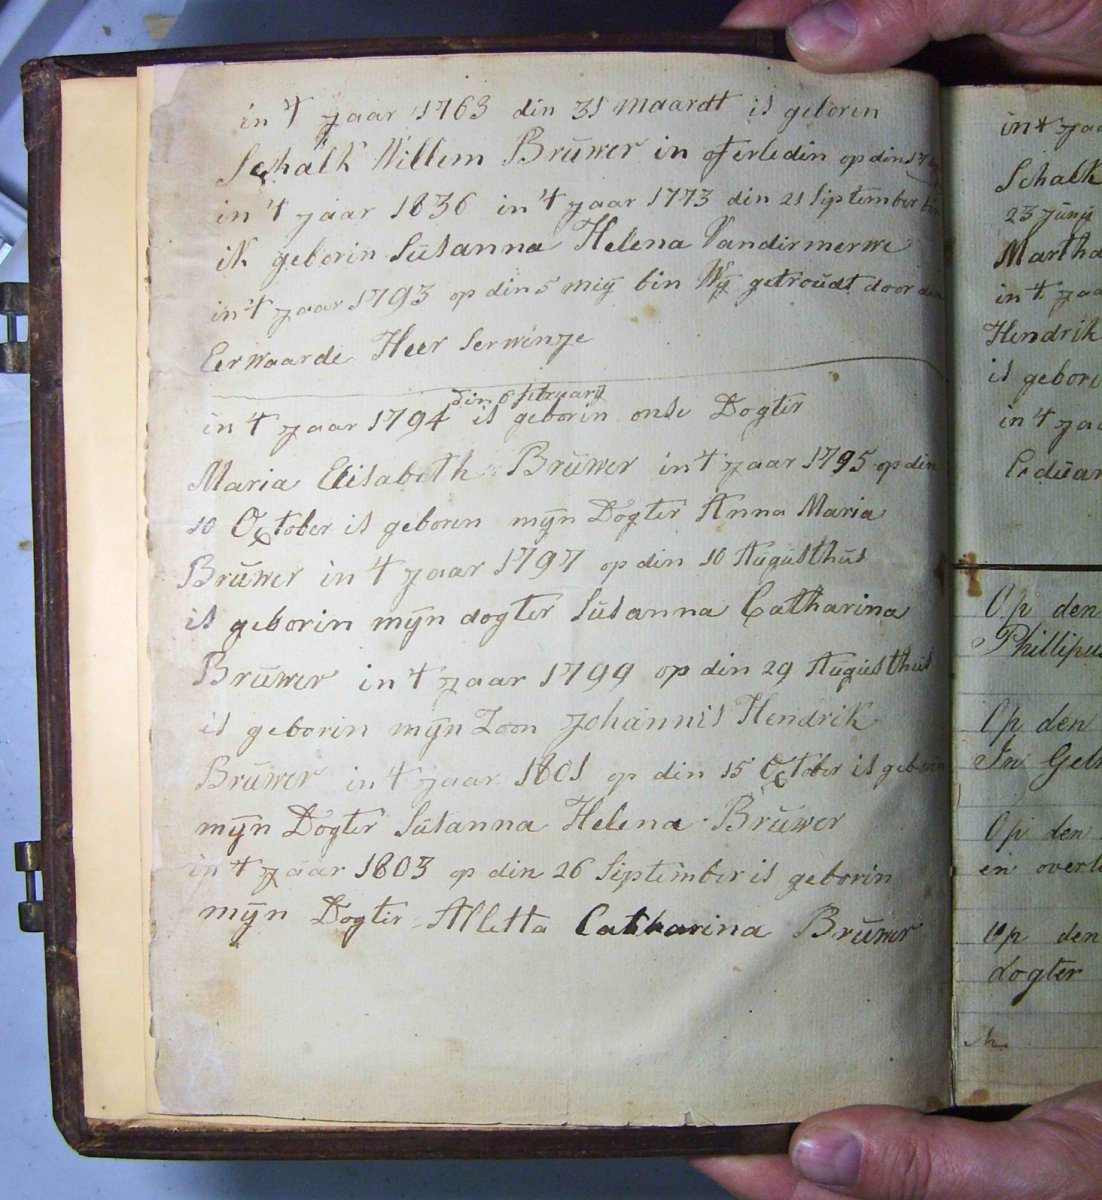 in 't jaar 1763 din 31 maardt is geboren
Schalk Willem Brúwer in of erledin op din 17
in 't jaar 1836 in 't jaar 1773 din 21 Siptember bin
ik geborin Súsanna Helena Vandirmerwe
in 't jaar 1793 op din 5 miÿ bin Wÿ getroúdt door din
Eerwaarde Heer Serwinje
din 6 februarÿ
in 't jaar 1794 is geborin onse Dogter
Maria Elisabeth Brúwer in 't jaar 1795 op din
10 October is geboren mÿn Dogter Anna Maria
Brúwer in 't jaar 1797 op din 10 Augústhús
is geborin mÿn dogter Súsanna Catharina
Brúwer in 't jaar 1799 op din 29 Augústhús
is geborin mÿn Zoon Johannis Hendrik
Brúwer in 't jaar 1801 op din 15 October is geboren
mÿn Dogter Súsanna Helena Brúwer
in 't jaar 1803 op din 26 Siptember is geborin
mÿn Dogter Alletta Catharina Brúwer
in 't jaa
Schalk
23 júnÿ
Martha
in 't jaa
Hendrik
is gebori
in 't jaa
Op den
Phillipus
Op den
In Geb
Op den
en overl
Op den
dogter